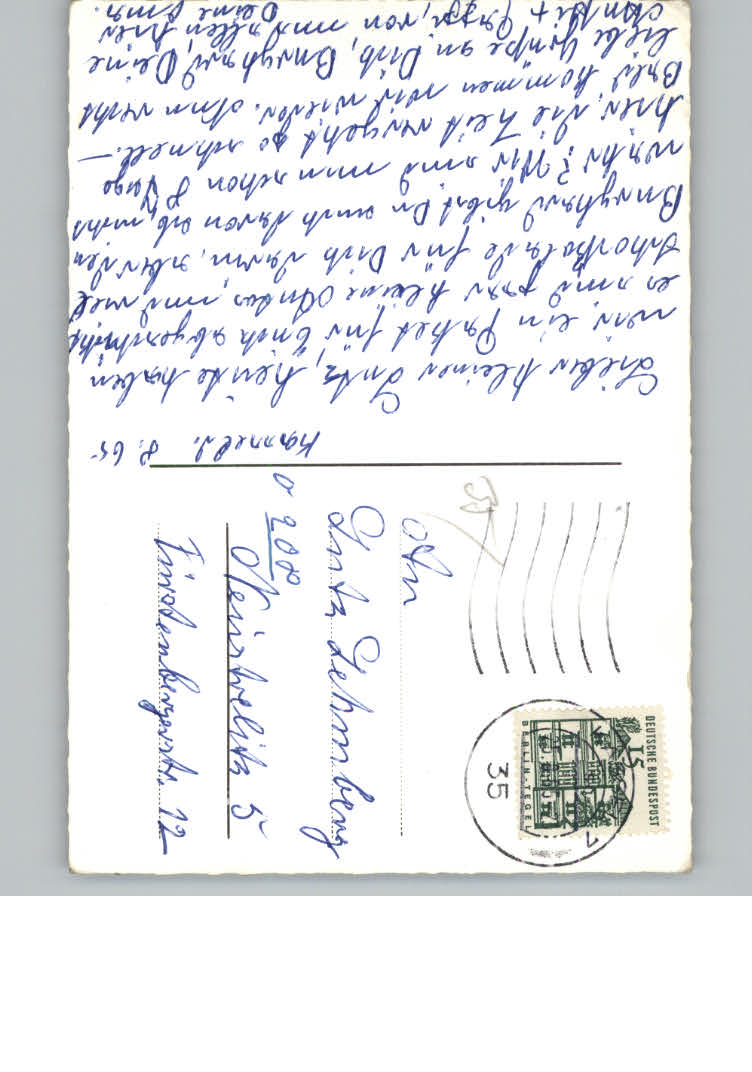 Kassel d. 8. 65
Lieber kleiner Lutz, heute haben
wir ein Paket für Euch abgeschickt
es sind paar kleine Autos und viel
Schokolade für Dich darin, aber den
Burghard gibst Du auch davon ab, nicht
wahr? Wir sind nun schon 8 Tage
hier, die Zeit vergeht so schnell.—
Bald kommen wir wieder. Nun recht
liebe Grüße an Dich, Burghard Deine
Mutti + Pappi, von uns allen hier
Deine Oma.
An
Lutz Lehmberg
208
Neustrelitz 5
Fürstenbergerstr. 12
DEUTSCHE BUNDESPOST
15
BERLIN-TEGEL
35